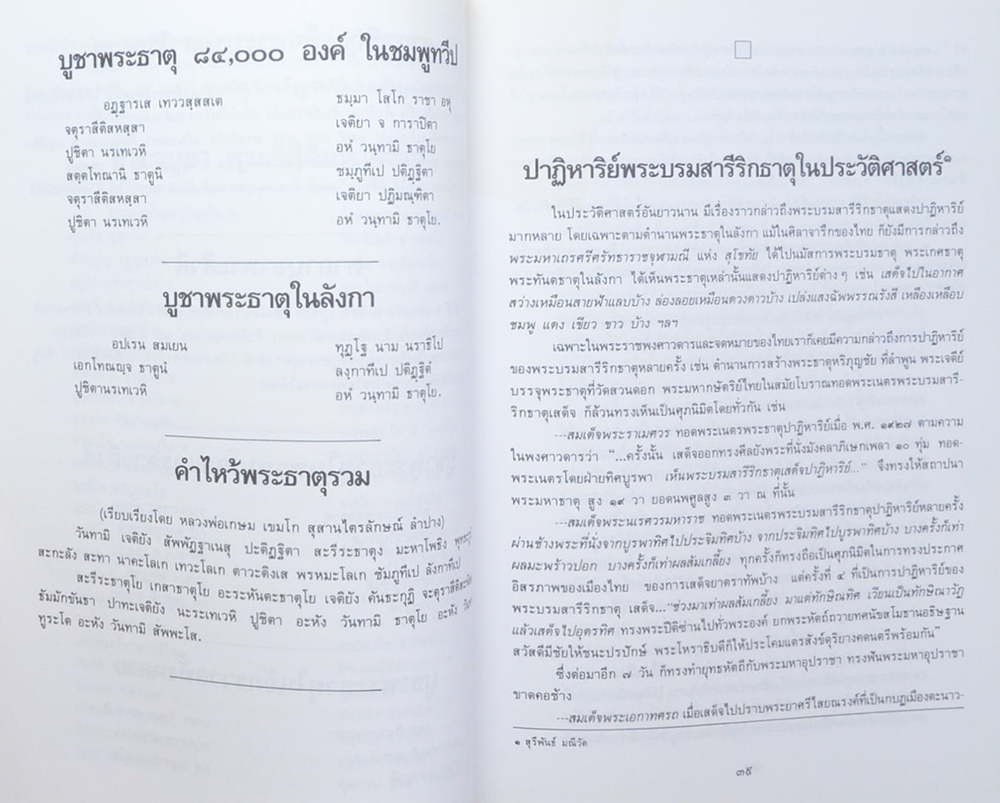 บูชาพระธาตุ ๘๔,๐๐๐ องค์ ในชมพูทวีป
อฏฺฐารเส เทววสฺสสเต ธมฺมา โสโก ราชา อหุ
จตุราสีติสหสฺสา เจติยา จ การาปิตา
ปูชิตา นรเทเวหิ อหํ วนฺทามิ ธาตุโย
สตฺตโทณานิ ธาตูนิ ชมฺภูทีเป ปติฏฺฐิตา
จตุราสีติสหสฺสา เจติยา ปฏิมณฺฑิตา
ปูชิตา นรเทเวหิ อหํ วนฺทามิ ธาตุโย.
บูชาพระธาตุในลังกา
อปเรน สมเยน ทุฏฺโฐ นาม นราธิโป
เอกโทณญฺจ ธาตูนํ ลงฺกาทีเป ปติฏฺฐิตํ
ปูชิตานรเทเวหิ อหํ วนฺทามิ ธาตุโย.
คำไหว้พระธาตุรวม
(เรียบเรียงโดย หลวงพ่อเกษม เขมโก สุสานไตรลักษณ์ ลำปาง)
วันทามิ เจติยัง สัพพัฏฐาเนสุ ปะติฏฐิตา สะรีระธาตุง มะหาโพธิง
สะกะลัง สะทา นาคะโลเก เทวะโลเก ดาวะดิงเส พรหมะโลเก ชัมภูทีเป ลังกาทีเป
สะรีระธาตุโย เกสาธาตุโย อะระหันตะธาตุโย เจติยัง คันธะกุฎิ จะตุราสีติสะหัส
ธัมมักขันธา ปาทะเจติยัง นะระเทเวหิ ปูชิตา อะหัง วันทามิ ธาตุโย อะหัง
ทูระโต อะหัง วันทามิ สัพพะโส.
ปาฏิหาริย์พระบรมสารีริกธาตุในประวัติศาสตร์๑
ในประวัติศาสตร์อันยาวนาน มีเรื่องราวกล่าวถึงพระบรมสารีริกธาตุแสดงปาฏิหาริย์
มากหลาย โดยเฉพาะตามตำนานพระธาตุในลังกา แม้ในศิลาจารึกของไทย ก็ยังมีการกล่าวถึง
พระมหาเถรศรีศรัทธาราชจุฬามณี แห่ง สุโขทัย ได้ไปนมัสการพระบรมธาตุ พระเกศธาตุ
พระทันตธาตุในลังกา ได้เห็นพระธาตุเหล่านั้นแสดงปาฏิหาริย์ต่างๆ เช่น เสด็จไปในอากาศ
สว่างเหมือนสายฟ้าแลบบ้าง ล่องลอยเหมือนดวงดาวบ้าง เปล่งแสงฉัพพรรณรังสี เหลืองเหลือบ
ชมพู แดง เขียว ขาว บ้าง ฯลฯ
เฉพาะในพระราชพงศาวดารและจดหมายของไทยเราก็เคยมีความกล่าวถึงการปาฏิหาริย์
ของพระบรมสารีริกธาตุหลายครั้ง เช่น ตำนานการสร้างพระธาตุหริภุญชัย ที่ลำพูน พระเจดีย์
บรรจุพระธาตุที่วัดสวนดอก พระมหากษัตริย์ไทยในสมัยโบราณทอดพระเนตรพระบรมสารี-
ริกธาตุเสด็จ ก็ล้วนทรงเห็นเป็นศุภนิมิตโดยทั่วกัน เช่น
---สมเด็จพระราเมศวร ทอดพระเนตรพระธาตุปาฏิหาริย์เมื่อ พ.ศ. ๑๙๒๗ ตามความ
ในพงศาวดารว่า "...ครั้งนั้น เสด็จออกทรงศีลยังพระที่นั่งมังคลาภิเษกเพลา ๑๐ ทุ่ม ทอด-
พระเนตรโดยฝ่ายทิศบูรพา เห็นพระบรมสารีริกธาตุเสด็จปาฏิหาริย์..." จึงทรงให้สถาปนา
พระมหาธาตุ สูง ๑๙ วา ยอดนพศูลสูง ๓ วา ณ ที่นั้น
---สมเด็จพระนเรศวรมหาราช ทอดพระเนตรพระบรมสารีริกธาตุปาฏิหาริย์หลายครั้ง
ผ่านช้างพระที่นั่งจากบูรพาทิศไปประจิมทิศบ้าง จากประจิมทิศไปบูรพาทิศบ้าง บางครั้งก็เท่า
ผลมะพร้าวปอก บางครั้งก็เท่าผลส้มเกลี้ยง ทุกครั้งก็ทรงถือเป็นศุภนิมิตในการทรงประกาศ
อิสรภาพของเมืองไทย ของการเสด็จยาตราทัพบ้าง แต่ครั้งที่ ๔ ที่เป็นการปาฏิหาริย์ของ
พระบรมสารีริกธาตุ เสด็จ..."ช่วงมาเท่าผลส้มเกลี้ยง มาแต่ทักษิณทิศ เวียนเป็นทักษิณาวัฏ
แล้วเสด็จไปอุดรทิศ ทรงพระปีติซ่านไปทั่วพระองค์ ยกพระหัตถ์ถวายทศนัขสโมธานอธิษฐาน
สวัสดีมีชัยให้ชนะปรปักษ์ พระโหราธิบดีก็ให้ประโคมแตรสังข์ดุริยางคดนตรีพร้อมกัน"
ซึ่งต่อมาอีก ๗ วัน ก็ทรงทำยุทธหัตถีกับพระมหาอุปราชา ทรงฟันพระมหาอุปราชา
ขาดคอช้าง
---สมเด็จพระเอกาทศรถ เมื่อเสด็จไปปราบพระยาศรีไสยณรงค์ที่เป็นกบฏเมืองตะนาว-
๑ สุริพันธ์ มณีวัต
๓๙